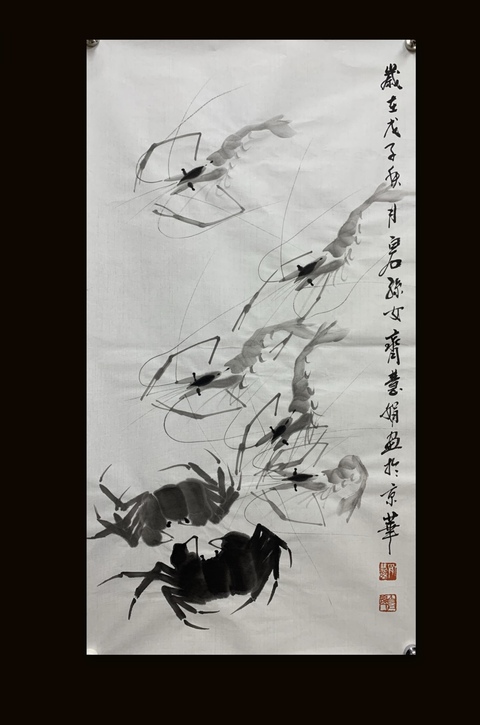 歲在戊子秋月白石孫女齊慧娟畫於京華